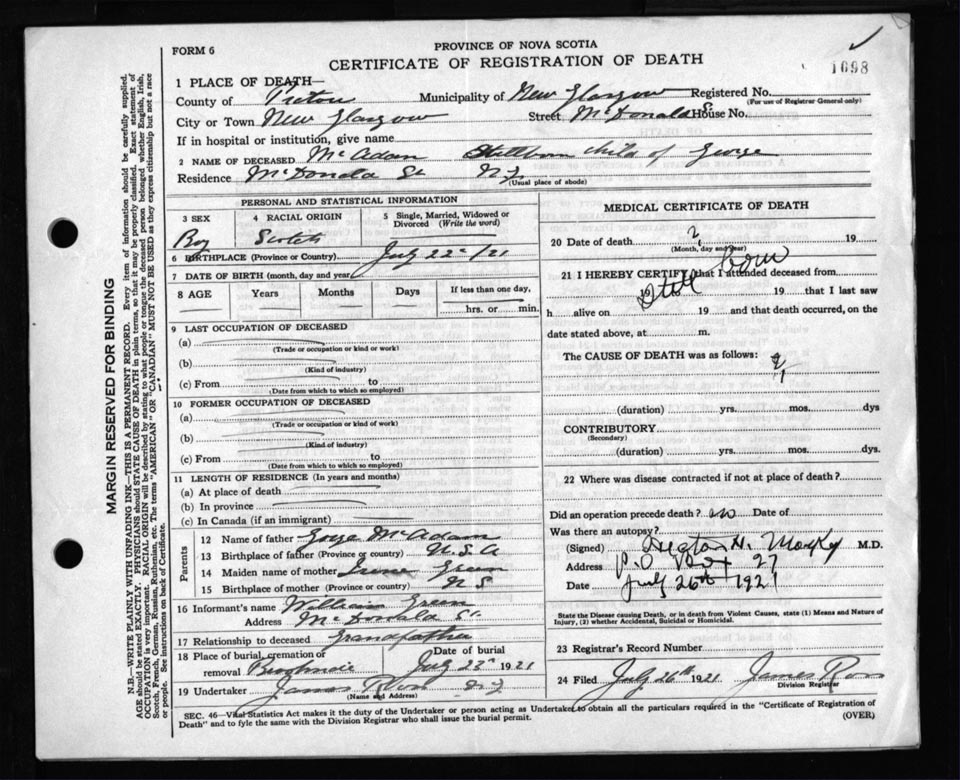 FORM 6
PROVINCE OF NOVA SCOTIA
CERTIFICATE OF REGISTRATION OF DEATH
1698
1 PLACE OF DEATH—
County of Pictou Municipality of New Glasgow Registered No.
(For use of Registrar General only)
City or Town New Glasgow Street McDonald S House No.
If in hospital or institution, give name
2 NAME OF DECEASED McAdam Stillborn child of George
Residence McDonald St N.G.
(Usual place of abode)
PERSONAL AND STATISTICAL INFORMATION
3 SEX
Boy
4 RACIAL ORIGIN
Scotch
5 Single, Married, Widowed or Divorced (Write the word)
6 BIRTHPLACE (Province or Country) July 22d/21
7 DATE OF BIRTH (month, day and year)
8 AGE Years Months Days If less than one day,
hrs. or min.
9 LAST OCCUPATION OF DECEASED
(a)
(Trade or occupation or kind or work)
(b)
(Kind of industry)
(c) From to
(Date from which to which so employed)
10 FORMER OCCUPATION OF DECEASED
(a)
(Trade or occupation or kind of work)
(b)
(Kind of industry)
(c) From to
(Date from which to which so employed)
11 LENGTH OF RESIDENCE (In years and months)
(a) At place of death
(b) In province
(c) In Canada (if an immigrant)
Parents
12 Name of father George McAdam
13 Birthplace of father (Province or country) U.S.A
14 Maiden name of mother Irene Green
15 Birthplace of mother (Province or country) N S
16 Informant's name William Green
Address McDonald St.
17 Relationship to deceased Grandfather
18 Place of burial, cremation or removal Date of burial
July 23d 1921
19 Undertaker James
(Name and Address)
MEDICAL CERTIFICATE OF DEATH
20 Date of death ? 19
(Month, day and year)
21 I HEREBY CERTIFY that I attended deceased from
Still born
19 19 that I last saw
h alive on 19 and that death occurred, on
date stated above, at m.
The CAUSE OF DEATH was as follows:
(duration) yrs. mos. dys
CONTRIBUTORY
(Secondary)
(duration) yrs. mos. dys.
22 Where was disease contracted if not at place of death?
Did an operation precede death? no Date of
Was there an autopsy?
(Signed) M.D.
Address P.O Box 27
Date July 26th 1921
State the Disease causing Death, or in death from Violent Causes, state (1) Means and Nature of Injury, (2) whether Accidental, Suicidal or Homicidal.
23 Registrar's Record Number
24 Filed July 26th 1921 James
Division Registrar
SEC. 46—Vital Statistics Act makes it the duty of the Undertaker or person acting as Undertaker to obtain all the particulars required in the "Certificate of Registration of
Death" and to fyle the same with the Division Registrar who shall issue the burial permit.
(OVER)
MARGIN RESERVED FOR BINDING
N.B.—WRITE PLAINLY WITH UNFADING INK—THIS IS A PERMANENT RECORD. Every item of information should be carefully supplied.
AGE should be stated EXACTLY. PHYSICIANS should STATE CAUSE OF DEATH in plain terms, so that it may be properly classified. Exact statement of
OCCUPATION is very important. RACIAL ORIGIN will be described by stating to what people or tongue the deceased person belonged whether English, Irish,
Scotch, French, German, Russian, Ruthenian, etc. The terms "AMERICAN" OR "CANADIAN" MUST NOT BE USED as they express citizenship but not a race
or people. See instructions on back of Certificate.